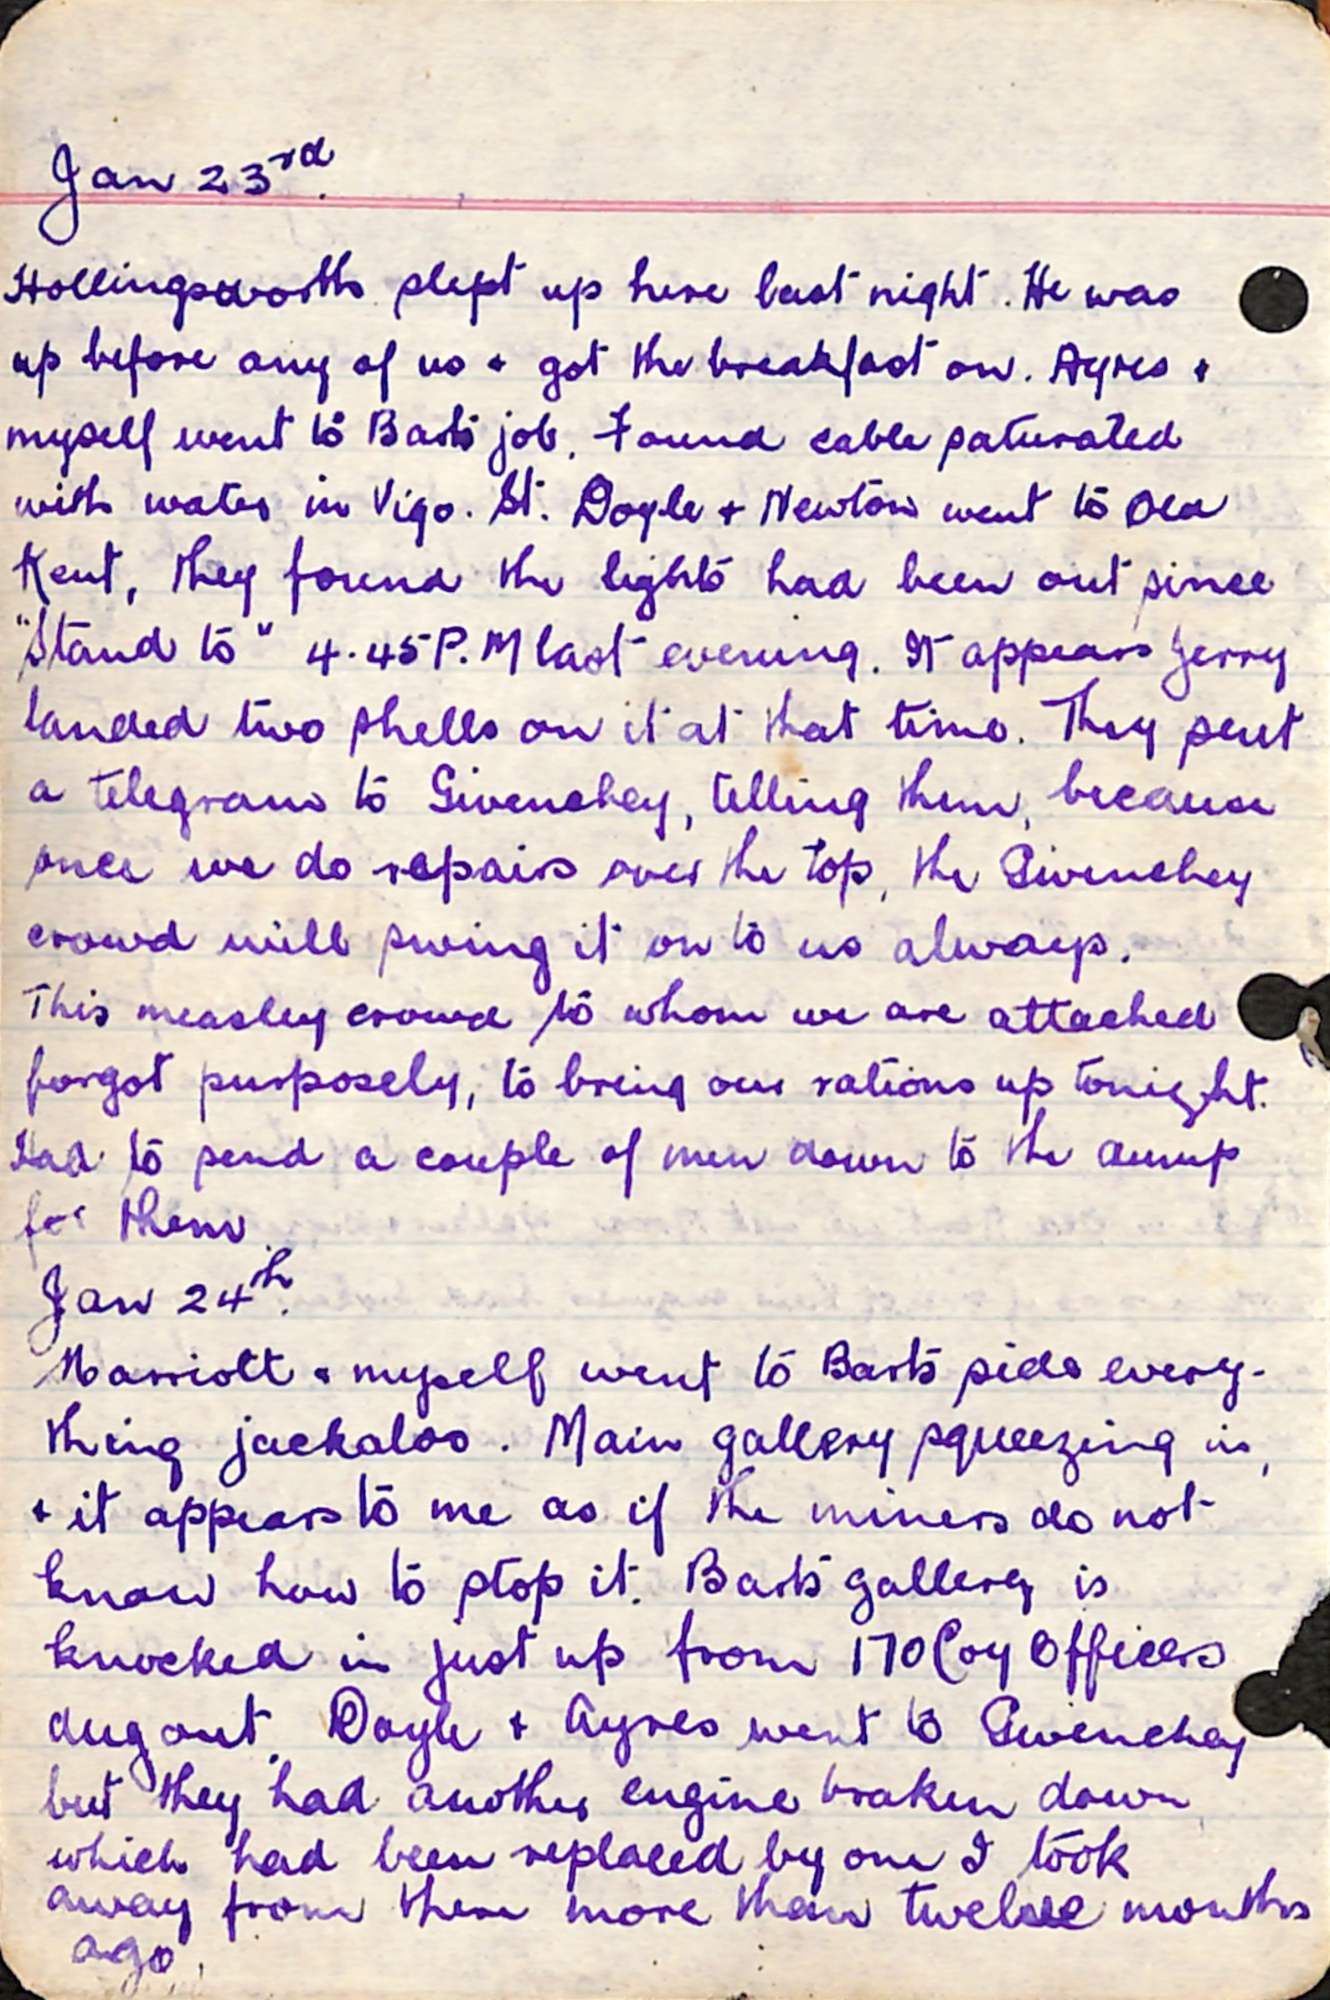 Jan 23rd.
Hollingsworth slept up here last night. He was
up before any of us + got the breakfast on. Ayres +
myself went to Barts job. Found cable saturated
with water in Vigo. St. Doyle + Newton went to Old
Kent, they found the lights had been out since
"Stand to" 4.45 P.M last evening. It appears Jerry
landed two shells on it at that time. They sent
a telegram to Givenchey, telling them, because
once we do repairs over the top, the Givenchey
crowd will swing it on to us always.
This measley crowd to whom we are attached
forgot purposely, to bring our rations up tonight.
Had to send a couple of men down to the dump
for them.
Jan 24th.
Marriott + myself went to Barts side every-
thing jackaloo. Main gallery squeezing in,
+ it appears to me as if the miners do not
know how to stop it. Barts gallery is
knocked in just up from 170 Coy Officers
dug out. Doyle + Ayres went to Givenchey
but they had another engine broken down
which had been replaced by one I took
away from there more than twelve months
ago.